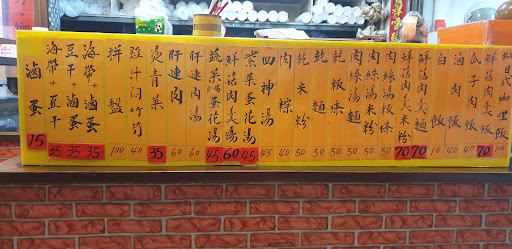 日式咖哩飯 100
70
瓜子肉飯 40
滷肉飯 40
白飯 10
鮮菇肉羹麵 70
鮮菇肉羹米粉 70
肉絲湯粄條 50
肉絲湯米粉 50
肉絲湯麵 50
乾粄條 40
乾麵 40
乾米粉 40
肉粽 40
四神湯 45
紫菜蛋花湯 45
鮮菇肉羹湯 60
蔬菜蛋花湯 45
肝連肉湯 60
肝連肉 60
燙青菜 35
雞汁洞竹筍 40
拼盤 100
海帶+滷蛋 35
豆干+滷蛋 35
海帶+豆干 35
滷蛋 15